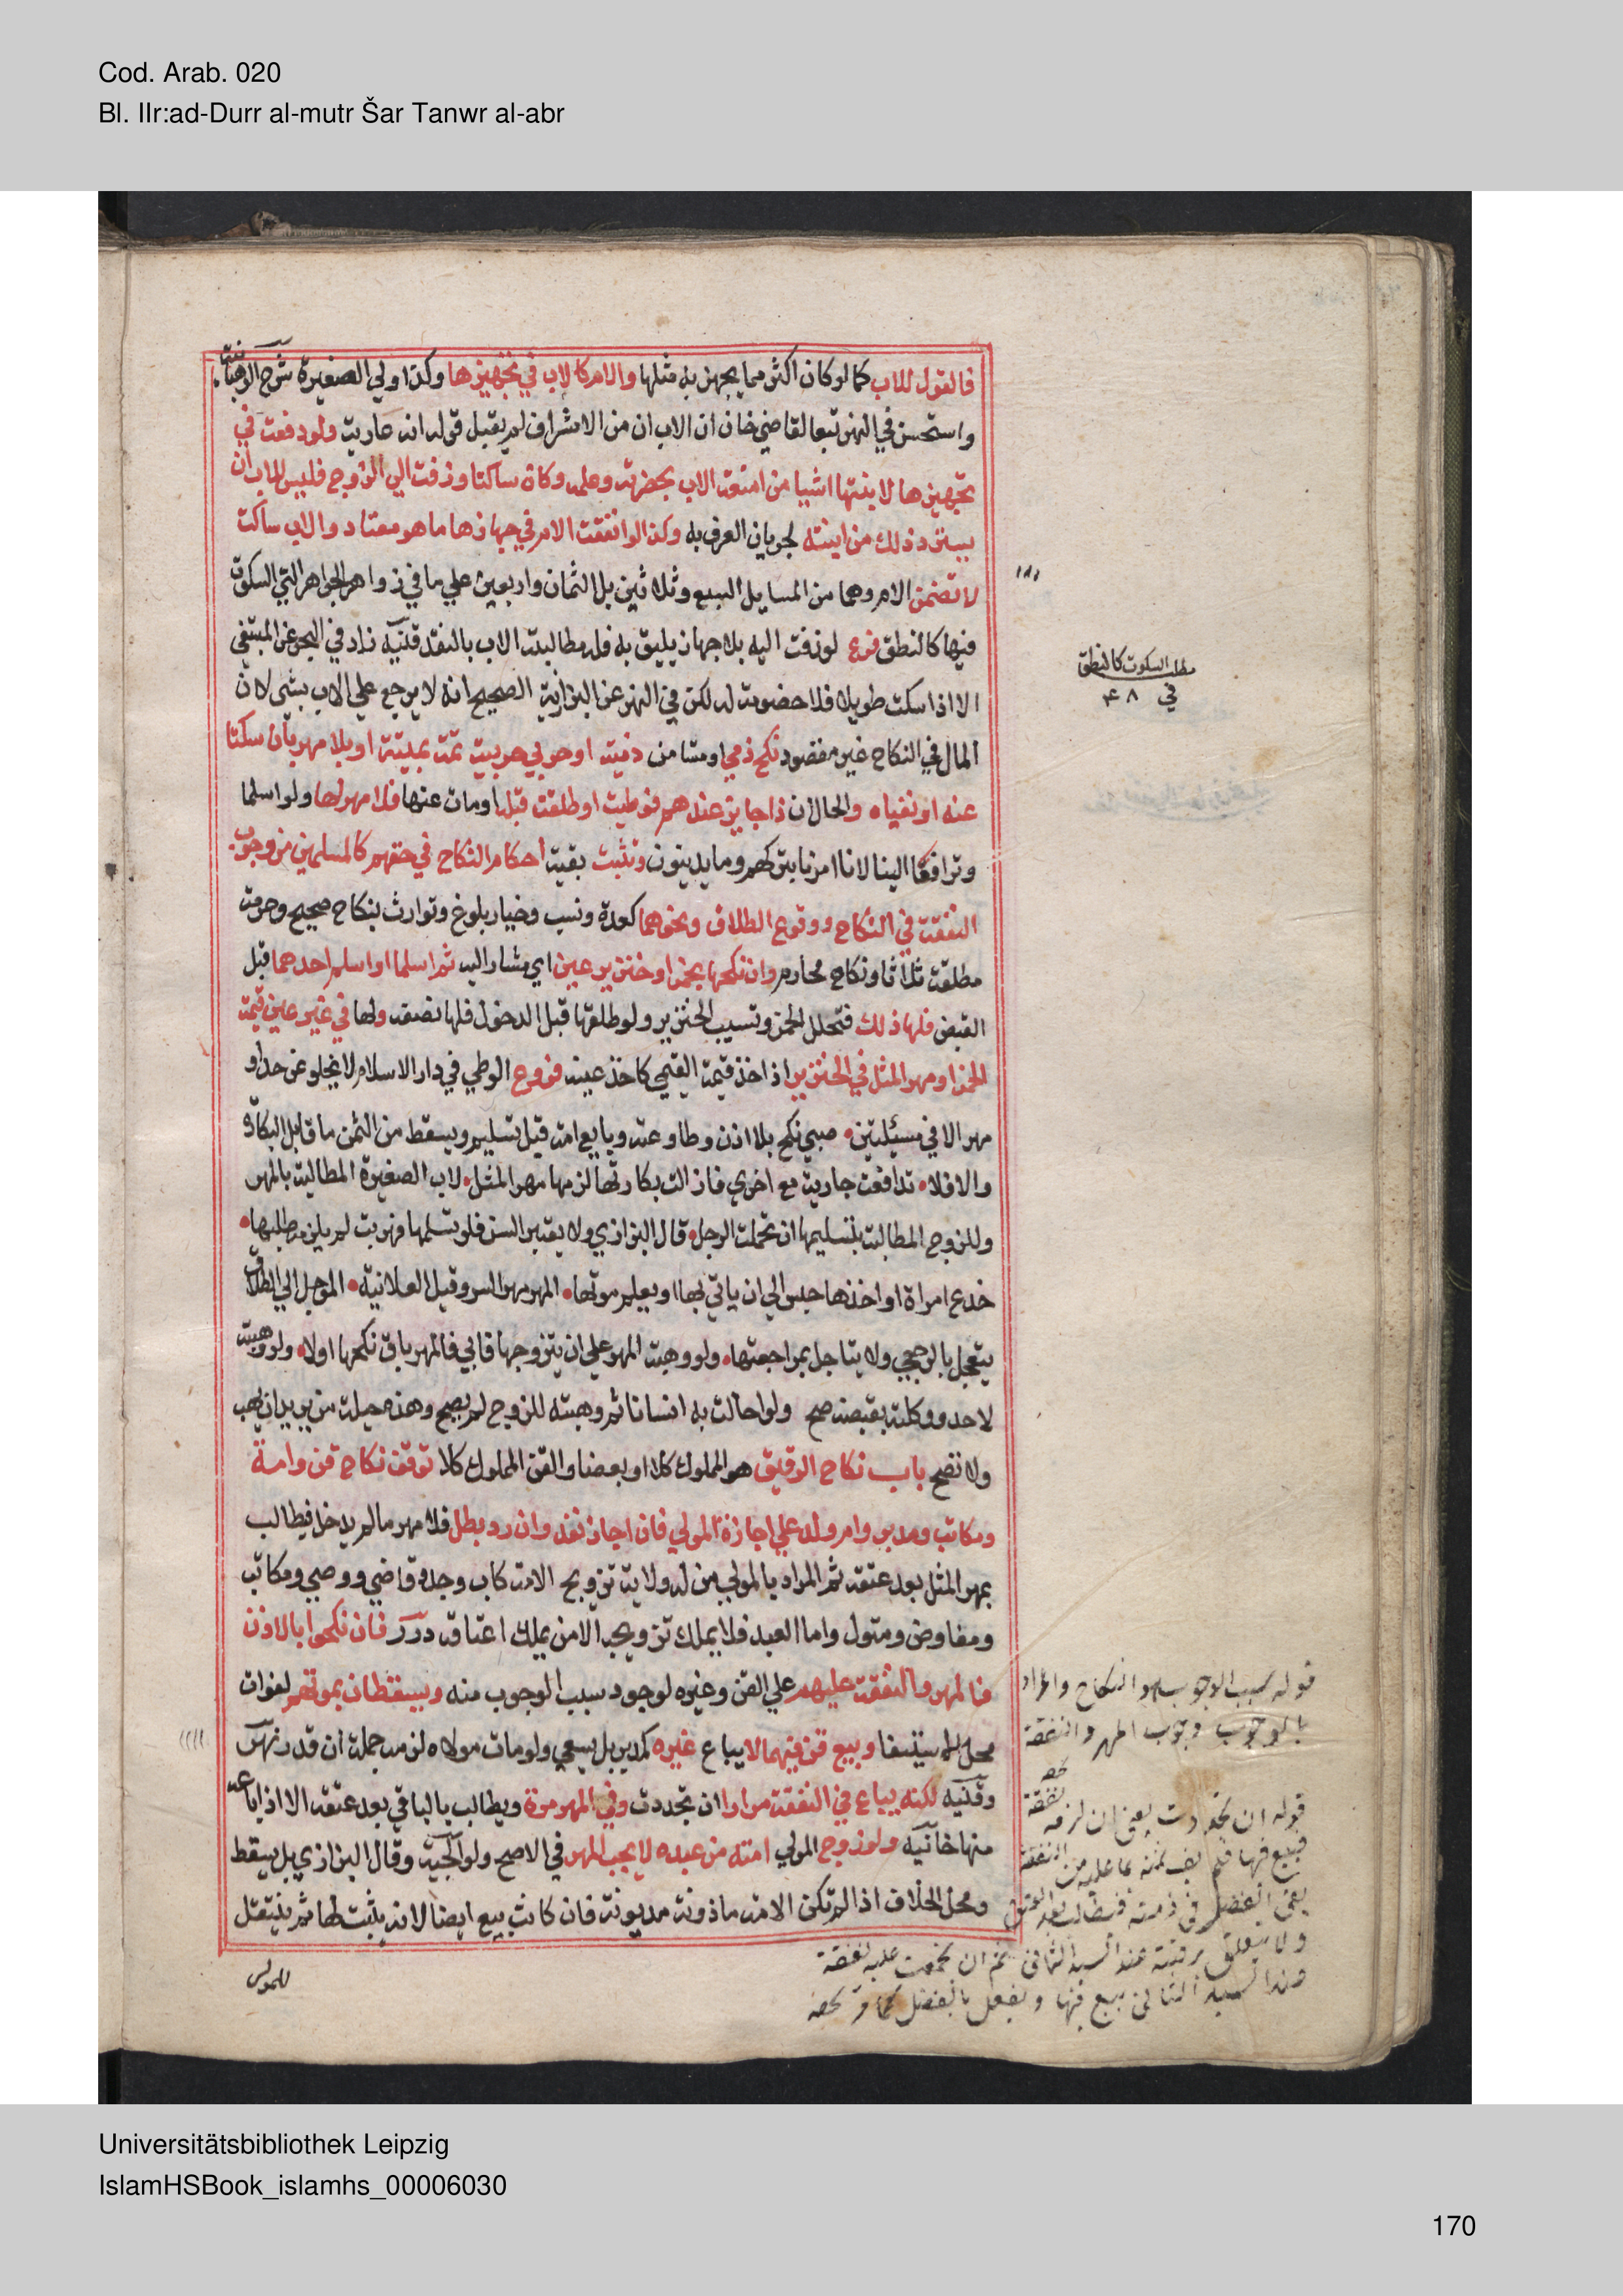 Cod. Arab. 020
Bl. IIr:ad-Durr al-mutr Šar Tanwr al-abr
فالقول للاب كما لو كان اكثر مما يجهز به مثلها والام كالاب في تجهيزها وكذا ولي الصغيرة شرح الوهبانية
واستحسن في النهر تبعا لقاضي خان ان الاب ان من الاشراف لم يقبل قوله انه عارية ولو دفعت في
تجهيزها لابنتها اشيا من امتعة الاب بحضرته وعلمه وكان ساكتا وزفت الي الزوج فليس للاب ان
يسترد ذلك من ابنته لجريان العرف به وكذا لو انفقت الام في جهازها ما هو معتاد والاب ساكت
لا تضمن الام وهما من المسايل السبع وثلاثين بل الثمان واربعين علي ما في زواهر الجواهر التي السكوت
فيها كالنطق فرع لو زفت اليه بلا جهاز يليق به فله مطالبة الاب بالنقد قنية زاد في البحر عن المبتغي
الا اذا سكت طويلا فلا خصومة له لكن في النهر عن البزازية الصحيح انه لا يرجع علي الاب بشي لان
المال في النكاح غير مقصود نكح ذمي او مستامن ذمية او حربي حربية ثمة بميتة او بلا مهر بان سكتا
عنه او نفياه والحال ان ذا جايز عندهم فوطيت او طلقت قبله او مات عنها فلا مهر لها ولو اسلما
وترافعا الينا لانا امرنا بتركهم وما يدينون وتثبت بقية احكام النكاح في حقهم كالمسلمين من وجوب
النفقة في النكاح ووقوع الطلاق ونحوهما كعدة ونسب وخيار بلوغ وتوارث بنكاح صحيح وحرمة
مطلقة ثلاثا ونكاح محارم وان نكحها بخمر او خنزير عين اي مشار اليه ثم اسلما او اسلم احدهما قبل
القبض فلها ذلك فتخلل الخمر وتسيب الخنزير ولو طلقها قبل الدخول فلها نصفه ولها في غير عين قيمة
الخمر ومهر المثل في الخنزير اذ اخذ قيمة القيمي كاخذ عينه فروع الوطي في دار الاسلام لا يخلو عن حد او
مهر الا في مسئلتين صبي نكح بلا اذن وطاوعته وبايع امته قبل تسليم ويسقط من الثمن ما قابل البكارة
والا فلا تدافعت جارية مع اخري فازالت بكارتها لزمها مهر المثل لاب الصغيرة المطالبة بالمهر
وللزوج المطالبة بتسليمها ان تحملت الرجل قال البزازي ولا يعتبر السن فلو تسلمها فهربت لم يلزم طلبها
خدع امراة او اخذها حبس الي ان ياتي بها او يعلم موتها المهر مهر السر وقيل العلانية الموجل الي الطلاق
يتعجل بالرجعي ولا يتاجل بمراجعتها ولو وهبت المهر علي ان يتزوجها فابي فالمهر باق نكحها اولا ولو وهبته
لاحد ووكلته بقبضه صح ولو احالت به انسانا ثم وهبته للزوج لم يصح وهذه حيلة من يريد ان يهب
ولا تصح باب نكاح الرقيق هو المملوك كلا او بعضا والقن المملوك كلا توقف نكاح قن وامة
ومكاتب ومدبر وام ولد علي اجازة المولي فان اجاز نفذ وان رد بطل فلا مهر ما لم يدخل فيطالب
بمهر المثل بعد عتقه ثم المراد بالمولي من له ولاية تزويج الامة كاب وجد وقاضي ووصي ومكاتب
ومفاوض ومتول واما العبد فلا يملك تزويجه الا من يملك اعتاقه درر فان نكحوا بالاذن
فالمهر والنفقة عليهم علي القن وغيره لوجود سبب الوجوب منه ويسقطان بموتهم لفوات
محل الاستيفا وبيع قن فيهما لا يباع غيره كمدبر بل يسعي ولو مات مولاه لزمه جملة ان قدر نهر
وقنية لكنه يباع في النفقة مرارا ان تجددت وفي المهر مرة ويطالب بالباقي بعد عتقه الا اذا باعه
منها خانية ولو زوج المولي امته من عبده لا يجب المهر في الاصح ولوالجية وقال البزازي بل يسقط
ومحل الخلاف اذا لم تكن الامة ماذونة مديونة فان كانت بيع ايضا لانه يثبت لها ثم ينتقل
للمولي
مطلب السكوت كالنطق
في ٤٨
قوله سبب الوجوب هو النكاح والمراد
بالوجوب وجوب المهر والنفقة
قوله ان تجددت يعني ان لزمه نفقة
فبيع فيها فلم يف ثمنه بما عليه من النفقة
يبقى الفضل في ذمته فيطالب بعد العتق
ولا يتعلق برقبته عند السيد الثاني نعم ان تجمعت عليه نفقة
عند السيد الثاني بيع فيها ويفعل بالفضل كما مر
Universitätsbibliothek Leipzig
IslamHSBook_islamhs_00006030
170